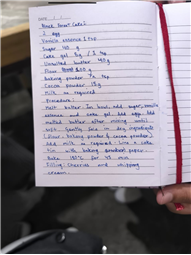 DATE: / /
Black Forest Cake!
2 egg
Vanilla essence 1 tsp
Sugar 140 g
Cake gel 5g / 1 tsp
Unsalted butter 140g
Flour 100g
baking powder ½ tsp
Cocoa powder 18g
Milk as required
Procedure:
Melt butter. In bowl, add sugar, vanilla
essence and cake gel. Add eggs. Add
melted butter after mixing until
well. Gently fold in dry ingredients
(flour, baking powder & cocoa powder)
Add milk as required. Line a cake
tin with baking parchment paper.
Bake 180°C for 45 min
Filling: Cherries and whipping
cream.